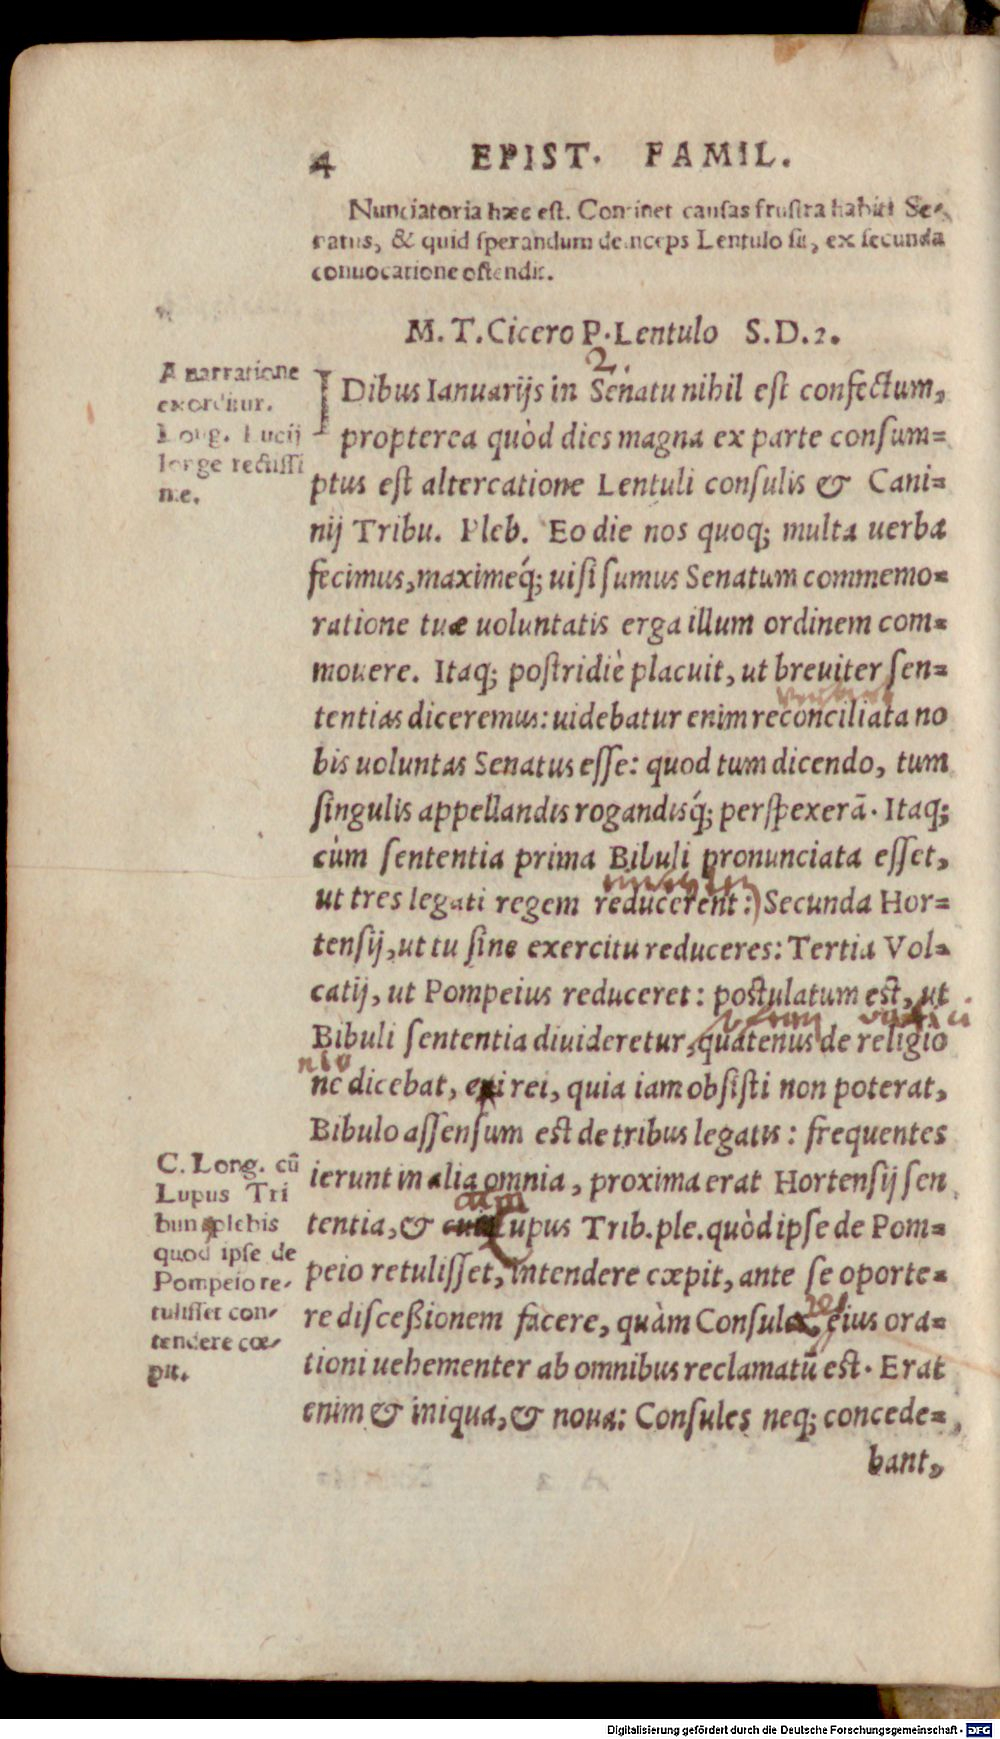 4 EPIST. FAMIL.
Nunciatoria hæc est. Continet causas frustra habiti Se-
natus, & quid sperandum deinceps Lentulo sit, ex secunda
conuocatione ostendit.
M. T. Cicero P. Lentulo S. D. 2.
2.
A narratione
exorditur.
Long. Lucij
longe rectissi
me.
IDibus Ianuarijs in Senatu nihil est confectum,
propterea quòd dies magna ex parte consum=
ptus est altercatione Lentuli consulis & Cani=
nij Tribu. Pleb. Eo die nos quoq; multa uerba
fecimus, maximeq́; uisi sumus Senatum commemo=
ratione tuæ uoluntatis erga illum ordinem com=
mouere. Itaq; postridiè placuit, ut breuiter sen=
tentias diceremus: uidebatur enim reconciliata no
bis uoluntas Senatus esse: quod tum dicendo, tum
singulis appellandis rogandisq́; perspexerã. Itaq;
cùm sententia prima Bibuli pronunciata esset,
ut tres legati regem reducerent: Secunda Hor=
tensij, ut tu sine exercitu reduceres: Tertia Vol=
catij, ut Pompeius reduceret: postulatum est, ut
Bibuli sententia diuideretur, quatenus de religio
ne dicebat, eỉ rei, quia iam obsisti non poterat,
Bibulo assensum est de tribus legatis: frequentes
ierunt in alia omnia, proxima erat Hortensij sen
tentia, & cum Lupus Trib. ple. quòd ipse de Pom=
peio retulisset, intendere cœpit, ante se oporte=
re disceßionem facere, quàm Consules, eius ora=
tioni uehementer ab omnibus reclamatũ est. Erat
enim & iniqua, & noua: Consules neq; concede=
bant,
C. Long. cũ
Lupus Tri
bun plebis
quod ipse de
Pompeio re-
tulisset con-
tendere cœ-
pit.
Digitalisierung gefördert durch die Deutsche Forschungsgemeinschaft - DFG